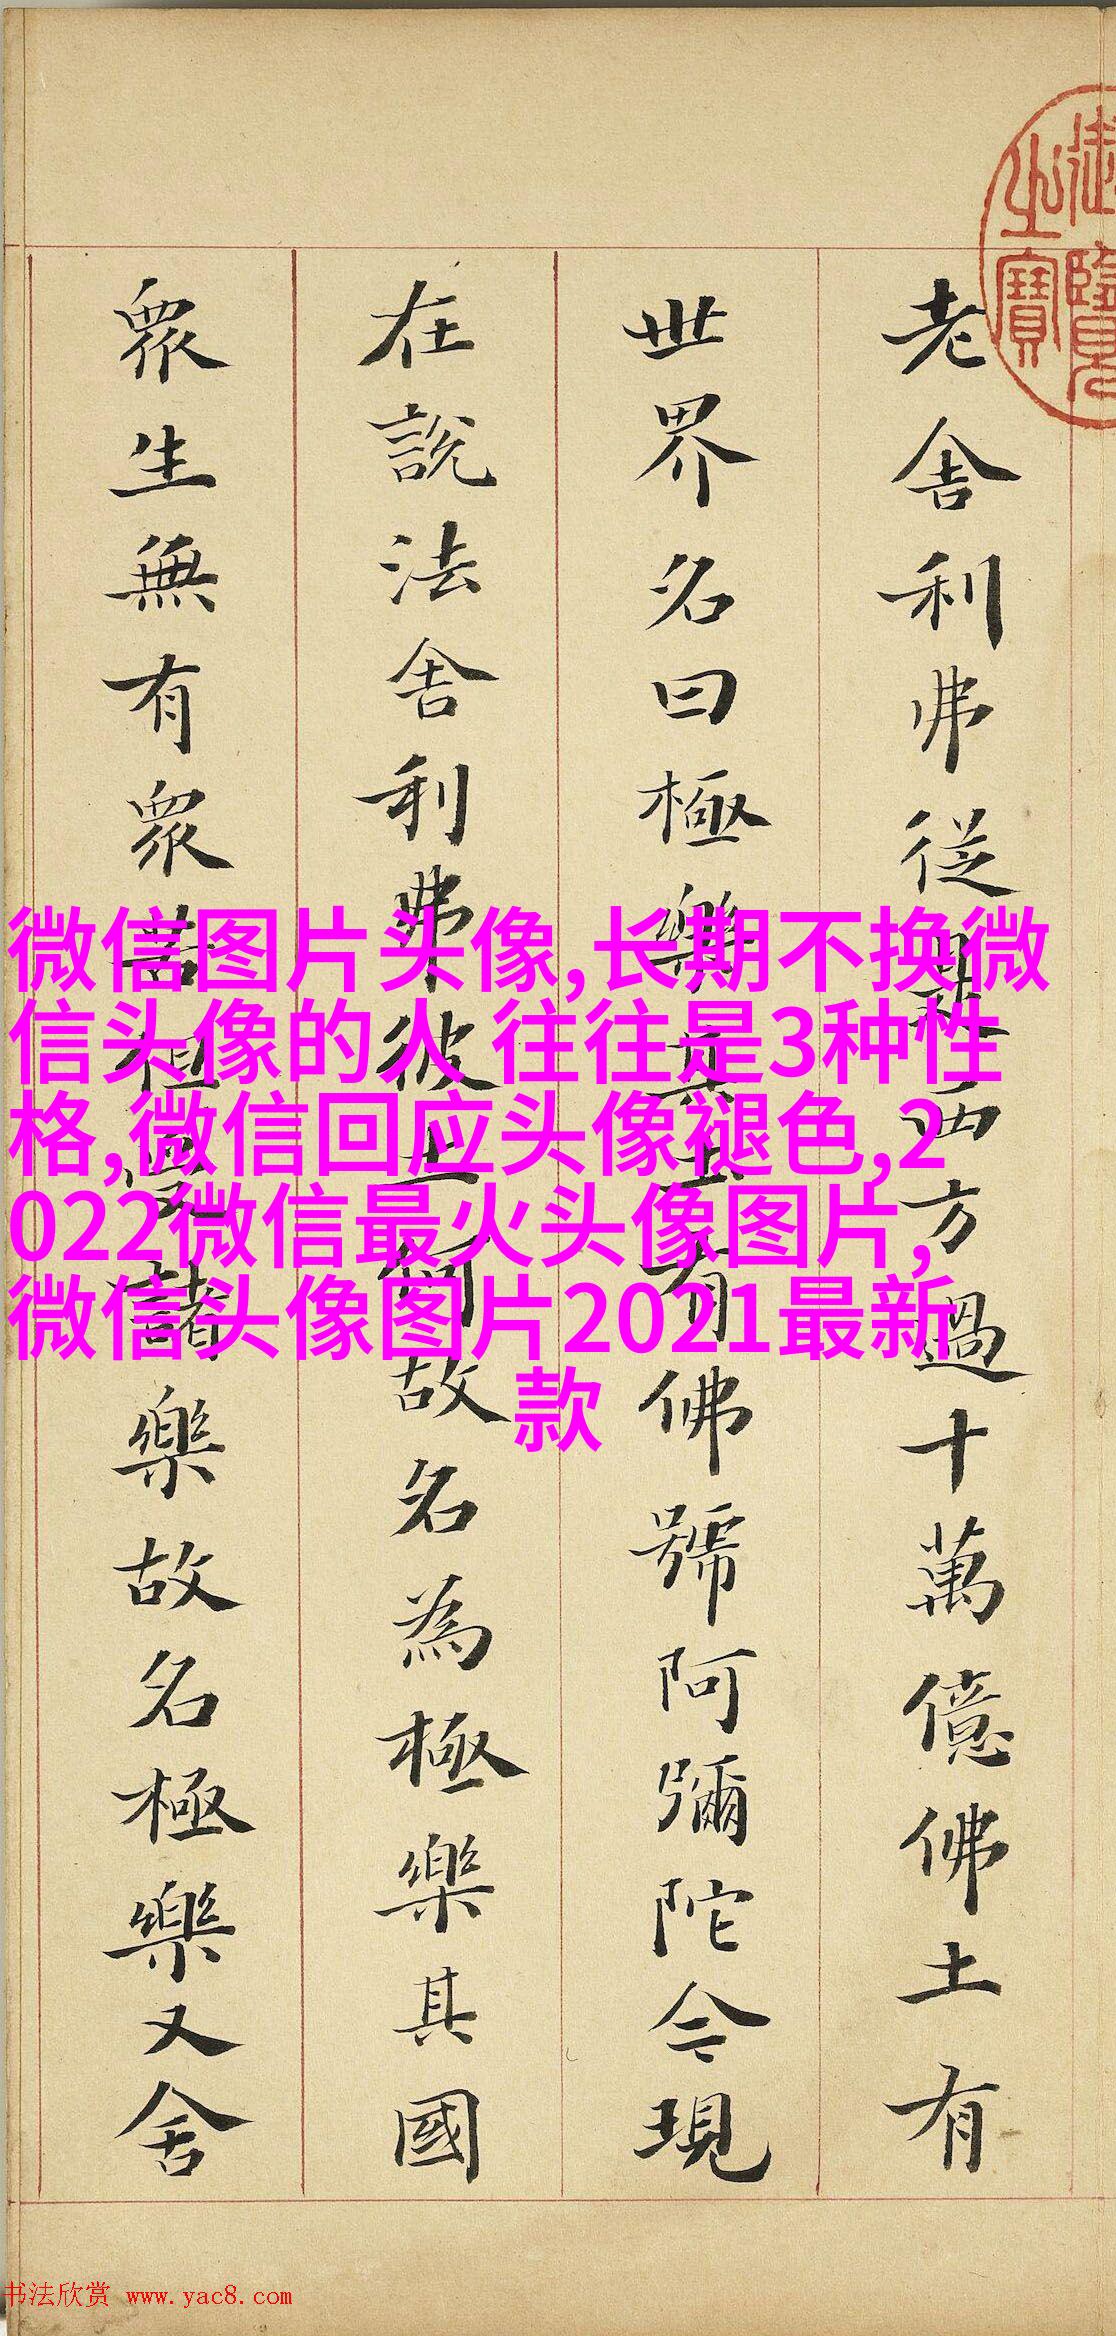 御覽
之寶
老舍利弗從是西方過十萬億佛土有
世界名曰極樂其土有佛號阿彌陀今現
在說法舍利弗彼土何故名為極樂其國
眾生無有眾苦但受諸樂故名極樂又舍
微信图片头像,长期不换微
信头像的人 往往是3种性
格,微信回应头像褪色,2
022微信最火头像图片,
微信头像图片2021最新
款
书法欣赏 www.yac8.com